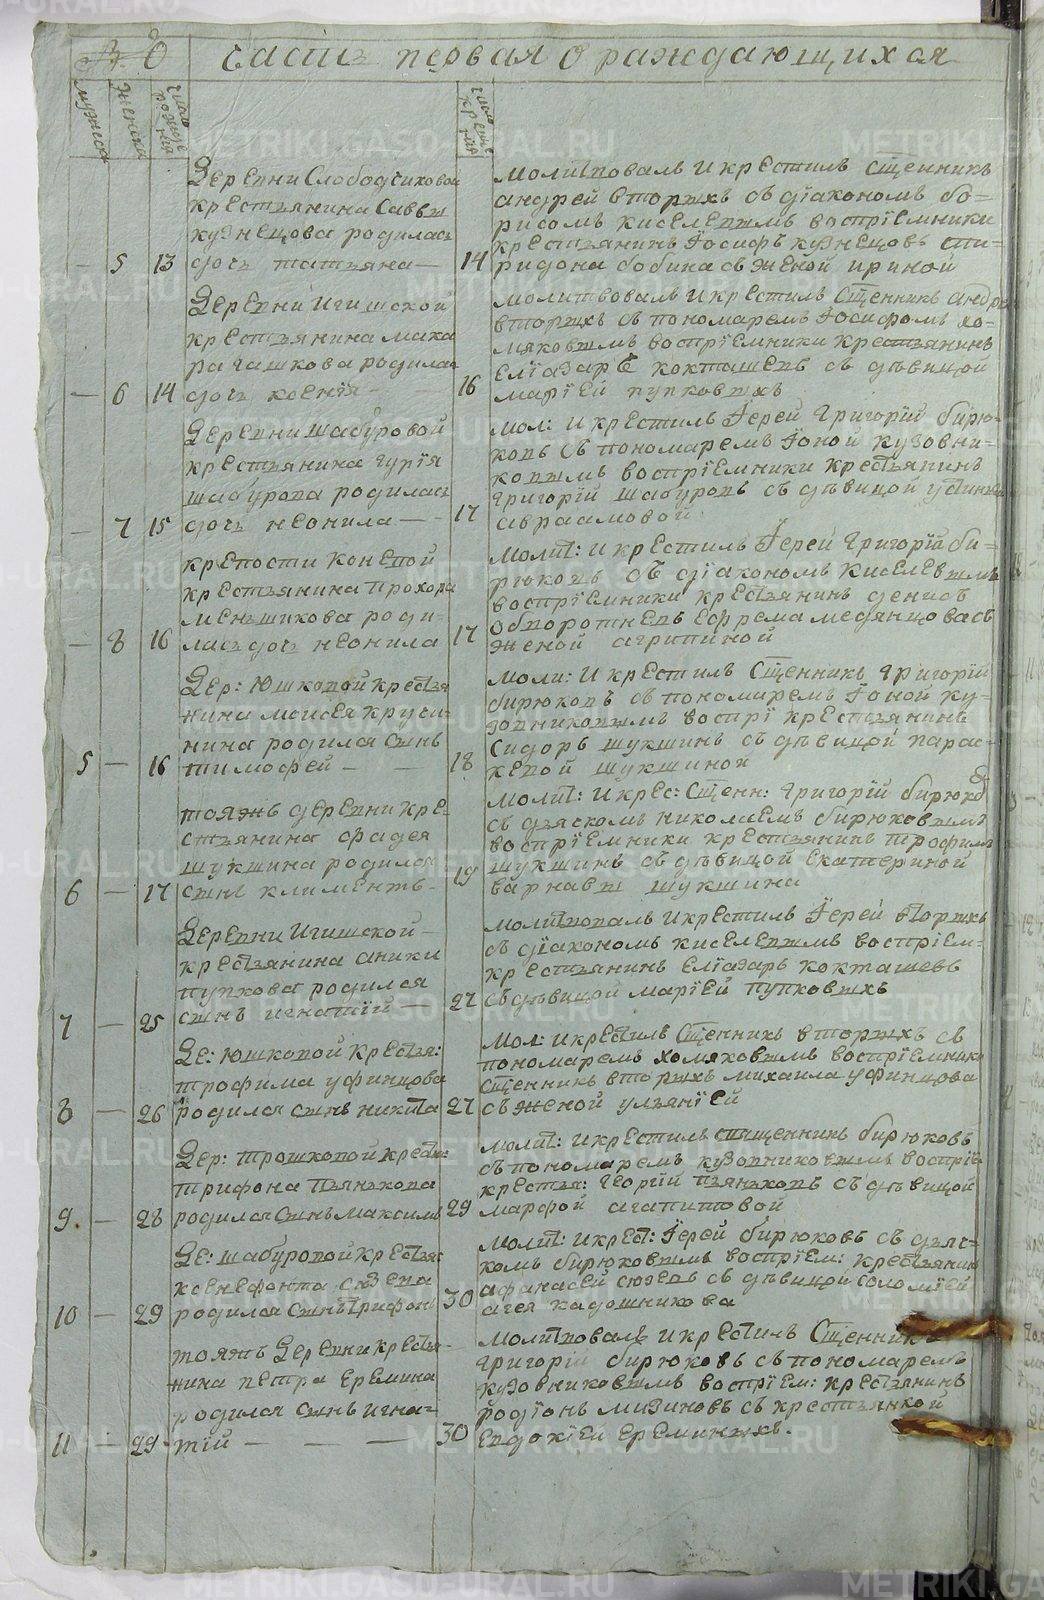 Часть первая о раждающихся
мужеска
женска
число рожде ния
число креще ния
Деревни Слободчиковой
крестьянина Саввы
кузнецова родилась
5 13 дочь татьяна
14
молитвовалъ и крестилъ Сщенникъ
андрей вторыхъ съ діакономъ бо=
рисомъ киселевымъ воспріемники
крестьянинъ Іосифъ кузнецовъ спи=
ридона бобина съ женой ириной
Деревни Игишской
крестьянина мака
ра гашкова родилась
6 14 дочь ксенія
16
молитвовалъ и крестилъ Сщенникъ андрей
вторыхъ съ пономаремъ Іосифомъ хо=
мяковымъ воспріемники крестьянинъ
Еліазаръ кокташевъ съ девицой
маріей пупковыхъ
Деревни шабуровой
крестьянина гурія
шабурова родилась
7 15 дочь неонила
17
мол: и крестилъ Іерей Григорій бирю=
ковъ съ пономаремъ Іоной кузовни=
ковымъ воспріемники крестьянинъ
григорій шабуровъ съ девицой устиньей
авраамовой
крепости Коневой
крестьянина прохора
меньшикова роди=
8 16 лась дочь неонила
17
молит: и крестилъ Іерей Григорій би=
рюковъ съ діакономъ киселевымъ
воспріемники крестьянинъ денисъ
обворотневъ ефрема медянцова съ
женой агрипиной
Дер: Юшковой крестья
нина моисея круси=
нина родился сынъ
5 16 тимофей
18
моли: и крестилъ Сщенникъ григорій
бирюковъ съ пономаремъ Іоной ку=
зовниковымъ воспрі крестьянинъ
Сидоръ шукшинъ съ девицой парас=
кевой шукшиной
тояжъ деревни кре=
стьянина фадея
шукшина родился
6 17 сынъ климентъ
19
молит: и крес: Сщенн: григорій бирюковъ
съ дьяскомъ николаемъ бирюковымъ
воспріемники крестьянинъ трофимъ
шукшинъ съ девицой екатериной
варнавы шукшина
Деревни Игишской
крестьянина аники
пупкова родился
7 25 сынъ игнатій
27
молитвовалъ и крестилъ Іерей вторыхъ
съ діакономъ киселевымъ воспріем=
крестьянинъ Еліазаръ кокташевъ
съ девицой маріей пупковыхъ
Де: юшковой крестья:
трофима уфинцова
8 26 родился сынъ никита
27
мол: и крестилъ Сщенникъ вторыхъ съ
пономаремъ хомяковымъ воспріемники
Сщенникъ вторыхъ михаила уфинцова
съ женой ульяніей
Дер: трошковой крестья:
трифона пьянкова
9. 28 родился сынъ максимъ
29
молит: и крестилъ священникъ бирюковъ
съ пономаремъ кузовниковымъ воспріе
крестья: георгій пьянковъ съ девицой
марфой агапитовой
Де: шабуровой крестья:
ксенефонта сюзева
10 29 родился сынъ трифонъ
30
молит: и крест: Іерей бирюковъ съ дьяс=
комъ бирюковымъ воспріем: крестьянинъ
афанасей сюзевъ съ девицой соломіей
агея кадошникова
тояжъ Деревни крестья=
нина петра еремина
родился сынъ игна=
11 29 тій
30
молитвовалъ и крестилъ Сщенникъ
григорій бирюковъ съ пономаремъ
кузовниковымъ воспріем: крестьянинъ
родіонъ мизиновъ съ крестьянкой
Евдокіей ереминыхъ.
METRIKI.GASO-URAL.RU